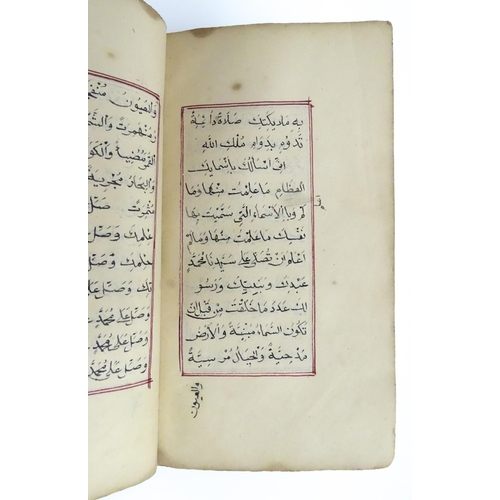 به ملايكتك صلاة دائمة
تدوم بدوام ملك الله
اني اسالك باسمايك
العظام ما علمت منها وما
لم وبالاسماء التي سميت بها
نفسك ما علمت منها وما لم
اعلم ان تصلي على سيدنا محمد
عبدك ونبيك ورسو
لك عدد ما خلقت من قبل ان
تكون السماء مبنية والارض
مدحية والجبال مرسية
والعيون
والعيون
منهمرت
والبحار مجرية
مثمرت صل
علمك وصل
حلمك وصل
تك وصل
وصل على محمد
وصل على محمد
وصل على محمد